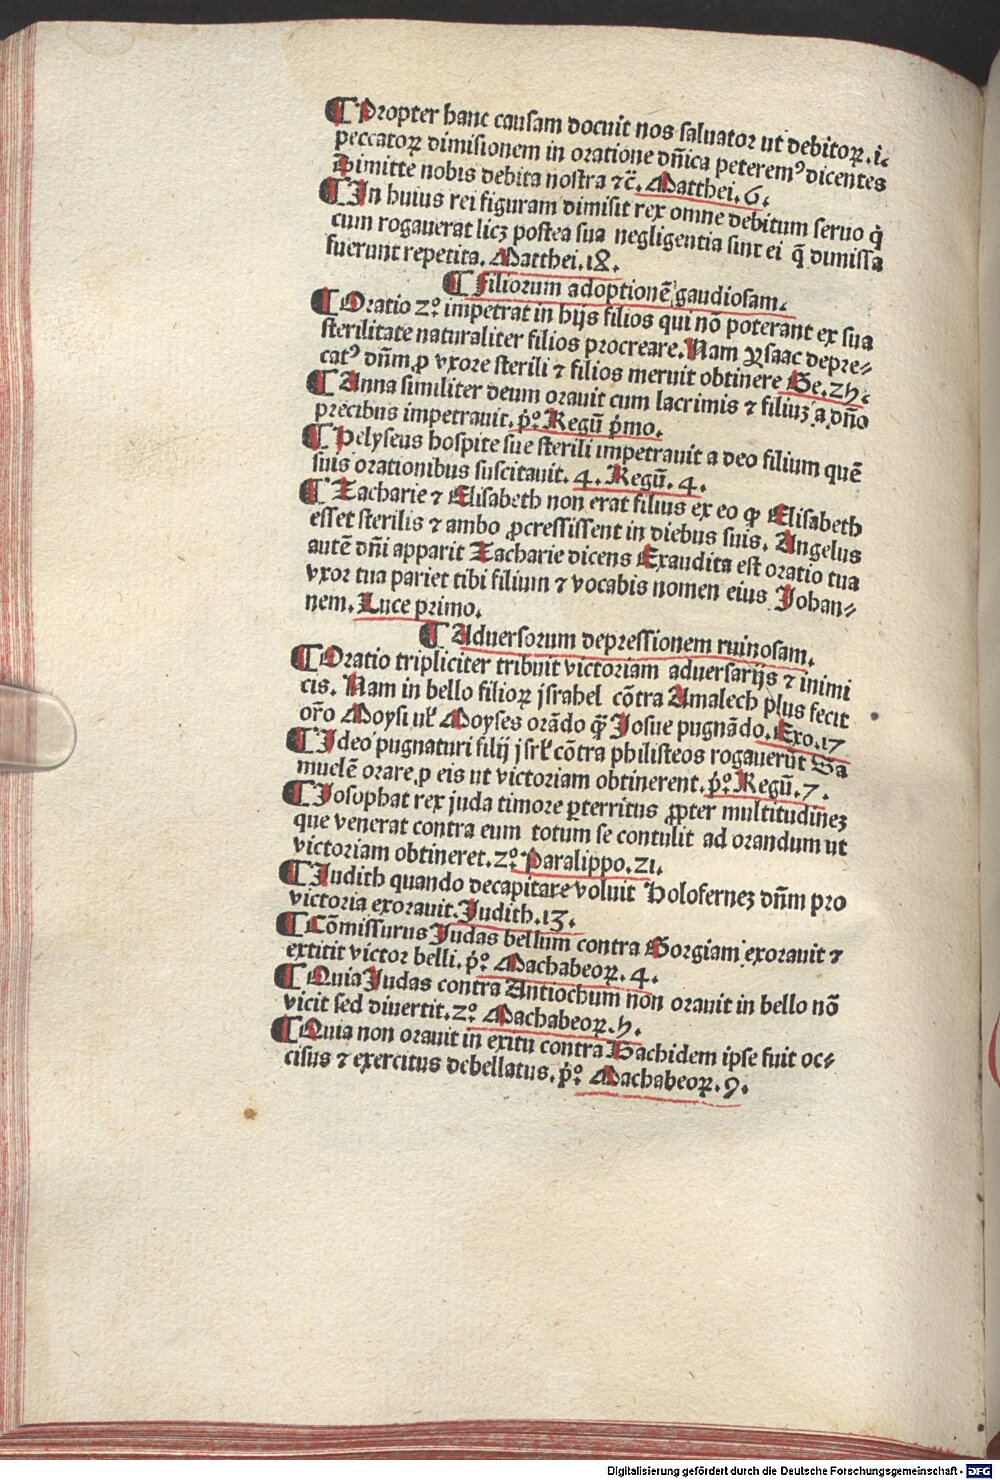 ¶ Propter hanc causam docuit nos saluator ut debitoꝝ .i.
peccatoꝝ dimisionem in oratione dn̄ica peteremꝰ dicentes
Dimitte nobis debita nostra ⁊c̄. Matthei. 6.
¶ In huius rei figuram dimisit rex omne debitum seruo q̇
cum rogauerat licꝫ postea sua negligentia sint ei q̄ dimissa
fuerunt repetita. Matthei. 18.
¶ Filiorum adoptionē gaudiosam.
¶ Oratio 2ͦ impetrat in hijs filios qui nō poterant ex sua
sterilitate naturaliter filios procreare. Nam Ysaac depre⸗
catꝰ dn̄m ꝓ vxore sterili ⁊ filios meruit obtinere Ge. 25.
¶ Anna similiter deum orauit cum lacrimis ⁊ filiuꝫ a dn̄o
precibus impetrauit. p̊. Regū p̄mo.
¶ Helyseus hospite sue sterili impetrauit a deo filium quē
suis orationibus suscitauit. 4. Regū. 4.
¶ Zacharie ⁊ Elisabeth non erat filius ex eo ꝙ Elisabeth
esset sterilis ⁊ ambo ꝓcressissent in diebus suis. Angelus
autē dn̄i apparit Zacharie dicens Exaudita est oratio tua
vxor tua pariet tibi filium ⁊ vocabis nomen eius Johan⸗
nem. Luce primo.
¶ Aduersorum depressionem ruinosam.
¶ Oratio tripliciter tribuit victoriam aduersarijs ⁊ inimi
cis. Nam in bello filioꝝ jsrahel cōtra Amalech plus fecit
or̄o Moysi ul̛ Moyses orādo q̄ꝫ Josue pugnādo. Exo. 17
¶ Ideo pugnaturi filij jsrl̛ cōtra philisteos rogauerūt Sa
muelē orare ꝓ eis ut victoriam obtinerent. p̊. Regū. 7.
¶ Josophat rex juda timore ꝑterritus ꝓpter multitudineꝫ
que venerat contra eum totum se contulit ad orandum ut
victoriam obtineret. 2ͦ. Paralippo. 21.
¶ Judith quando decapitare voluit Holoferneꝫ dn̄m pro
victoria exorauit. Judith. 13.
¶ Cōmissurus Judas bellum contra Gorgiam exorauit ⁊
extitit victor belli. p̊. Machabeoꝝ. 4.
¶ Quia Judas contra Antiochum non orauit in bello nō
vicit sed diuertit. 2ͦ. Machabeoꝝ. 5.
¶ Quia non orauit in exitu contra Bachidem ipse fuit oc⸗
cisus ⁊ exercitus debellatus. p̊. Machabeoꝝ. 9.
Digitalisierung gefördert durch die Deutsche Forschungsgemeinschaft - DFG